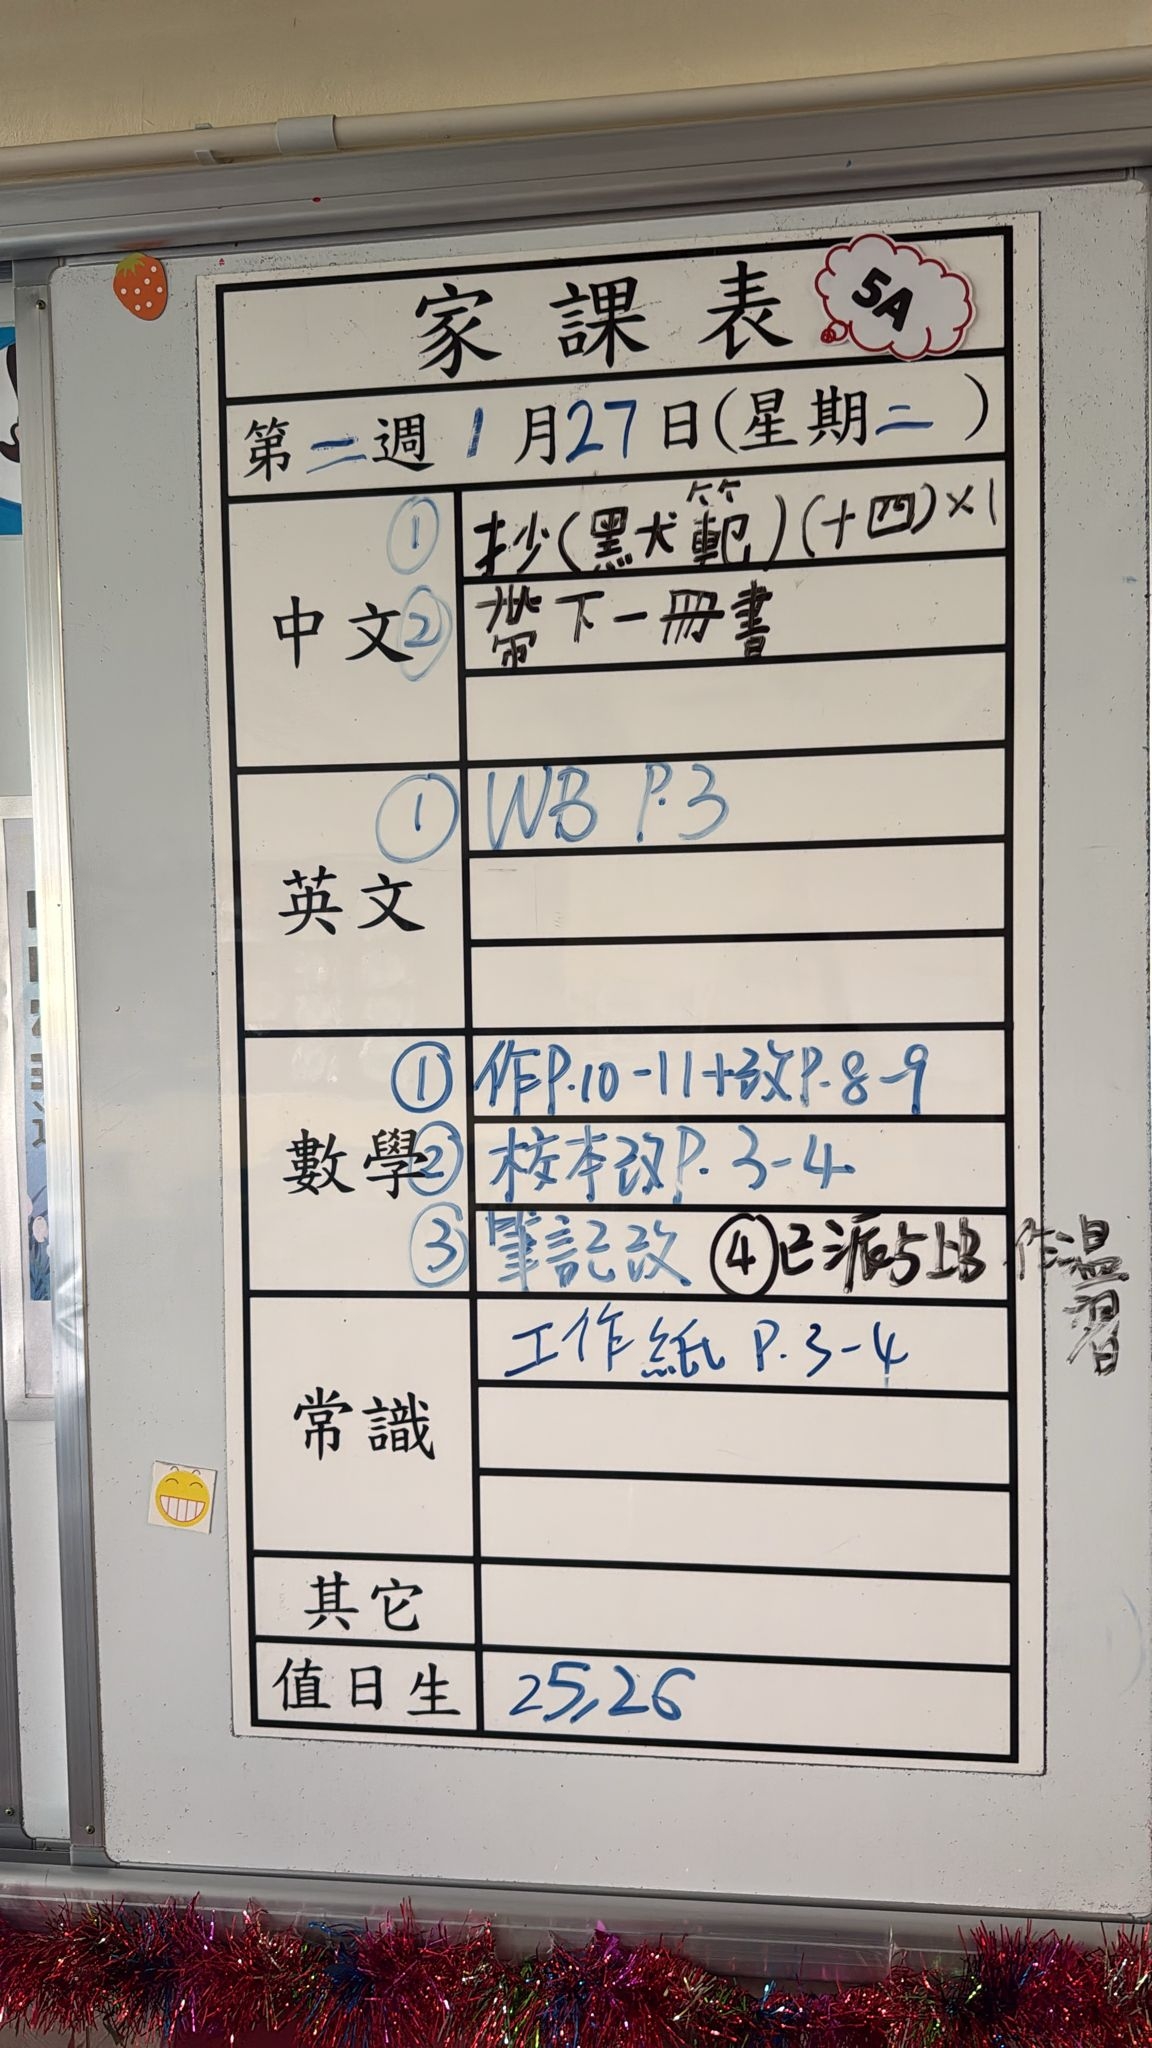 家課表 5A
第二週 1月27日(星期二)
中文
① 抄(黑犬範)(十四)×1
② 帶下一冊書
英文
① WB P.3
數學
① 作P.10-11+改P.8-9
② 校本改P.3-4
③ 筆記改 ④已派5上B作溫習
常識
工作紙 P.3-4
其它
值日生
25,26